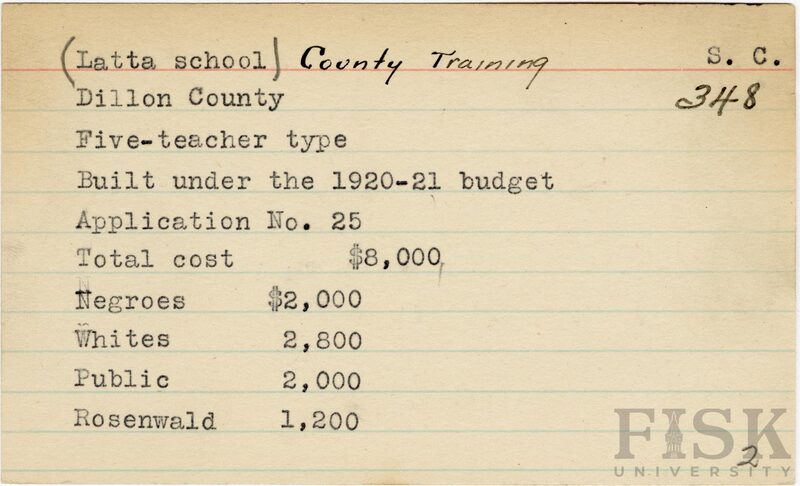 (Latta school) County Training S. C.
Dillon County 348
Five-teacher type
Built under the 1920-21 budget
Application No. 25
Total cost $8,000
Negroes $2,000
Whites 2,800
Public 2,000
Rosenwald 1,200
FISK
UNIVERSITY
2